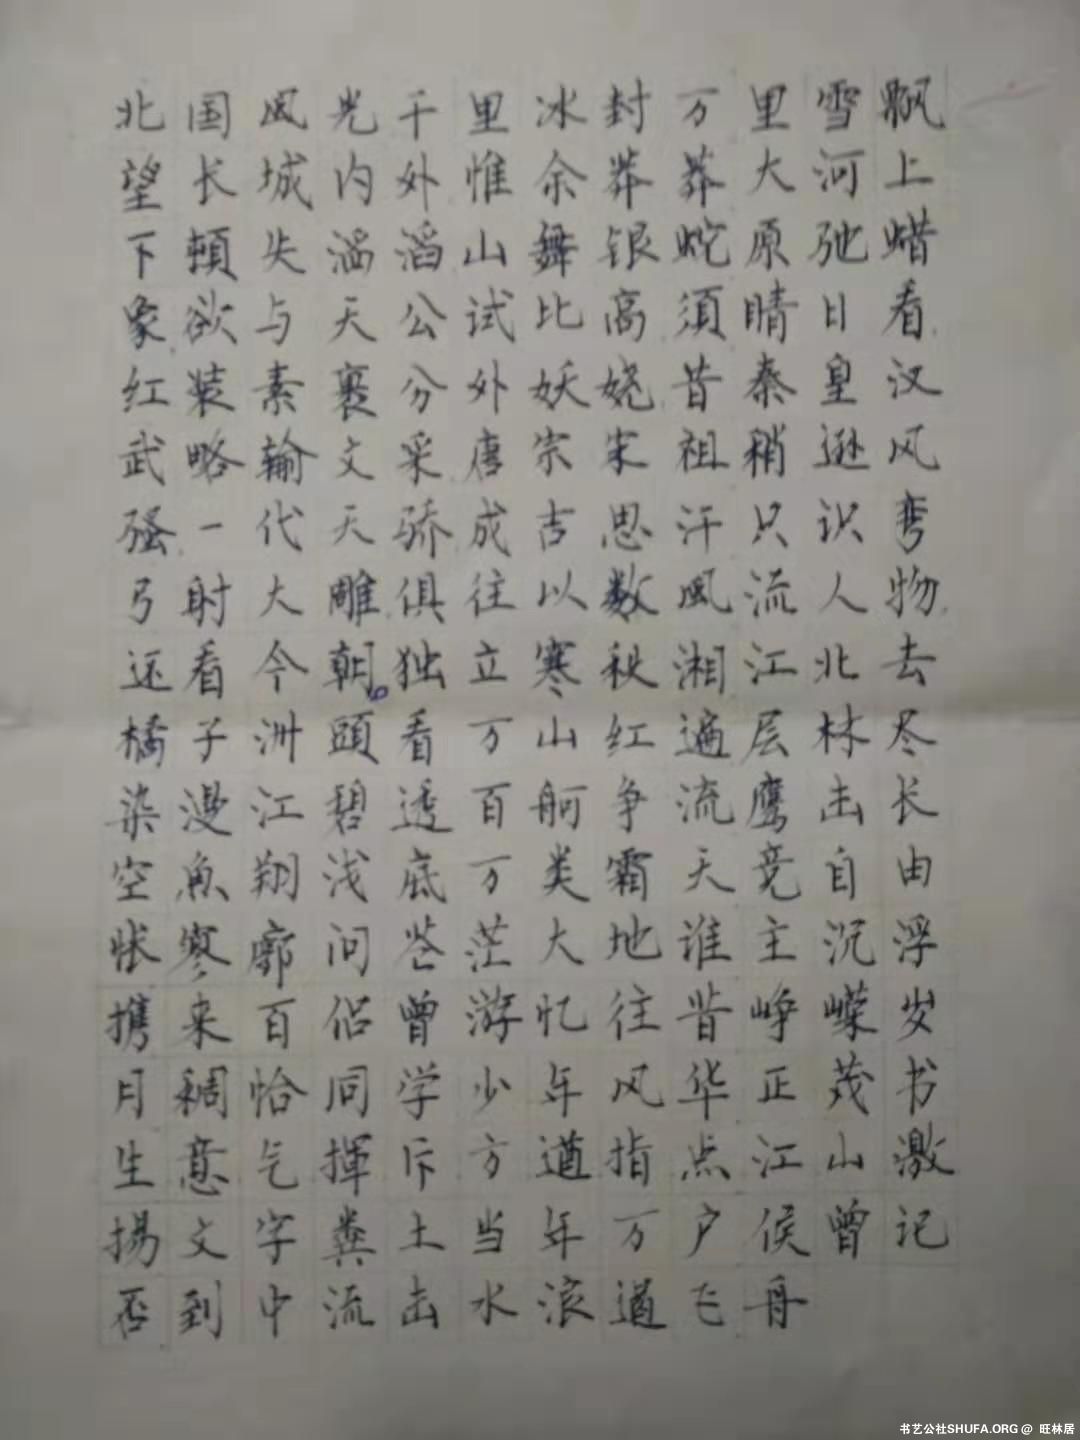 北国风光千里冰封万里雪飘
望长城内外惟余莽莽大河上
下頓失滔滔山舞银蛇原驰蜡
象欲与天公试比高須晴日看
红装素裹分外妖娆昔秦皇汉
武略输文采唐宗宋祖稍逊风
骚一代天骄成吉思汗只识弯
弓射大雕俱往以数風流人物
还看今朝。独立寒秋湘江北去
橘子洲頭看万山红遍层林尽
染漫江碧透百舸争流鹰击长
空魚翔浅底万类霜天竞自由
怅寥廓问苍茫大地谁主沉浮
携来百侣曾游忆往昔峥嵘岁
月稠恰同学少年风华正茂书
生意气揮斥方遒指点江山激
揚文字粪土当年万户侯曾记
否到中流击水浪遏飞舟
书艺公社SHUFA.ORG@ 旺林居